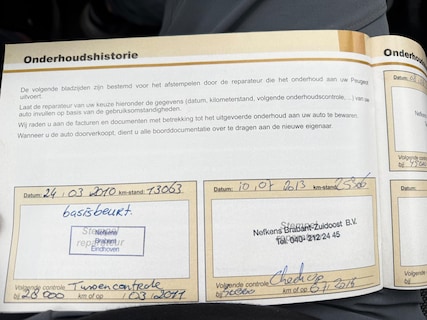 Onderhoudshistorie
De volgende bladzijden zijn bestemd voor het afstempelen door de reparateur die het onderhoud aan uw Peugeot
uitvoert.
Laat de reparateur van uw keuze hieronder de gegevens (datum, kilometerstand, volgende onderhoudscontrole,...) van uw
auto invullen op basis van de gebruiksomstandigheden.
Wij raden u aan de facturen en documenten met betrekking tot het uitgevoerde onderhoud aan uw auto te bewaren.
Wanneer u de auto doorverkoopt, dient u alle boorddocumentatie over te dragen aan de nieuwe eigenaar.
Datum: 24 : 03 2010 km-stand: 13063
basisbeurt.
Stempel
reparateur
Nefkens
Brabant
Eindhoven
Volgende controle Tussencontrole
bij 28000 km of op : 03 : 2011
Datum: 10 , 07 2013 km-stand:
Stempel
reparateur
Nefkens Brabant-Zuidoost B.V.
Tel. 040- 212 24 45
Volgende controle Check up
bij km of op
Onderho
Datum:
Volgende
bij
Datum: